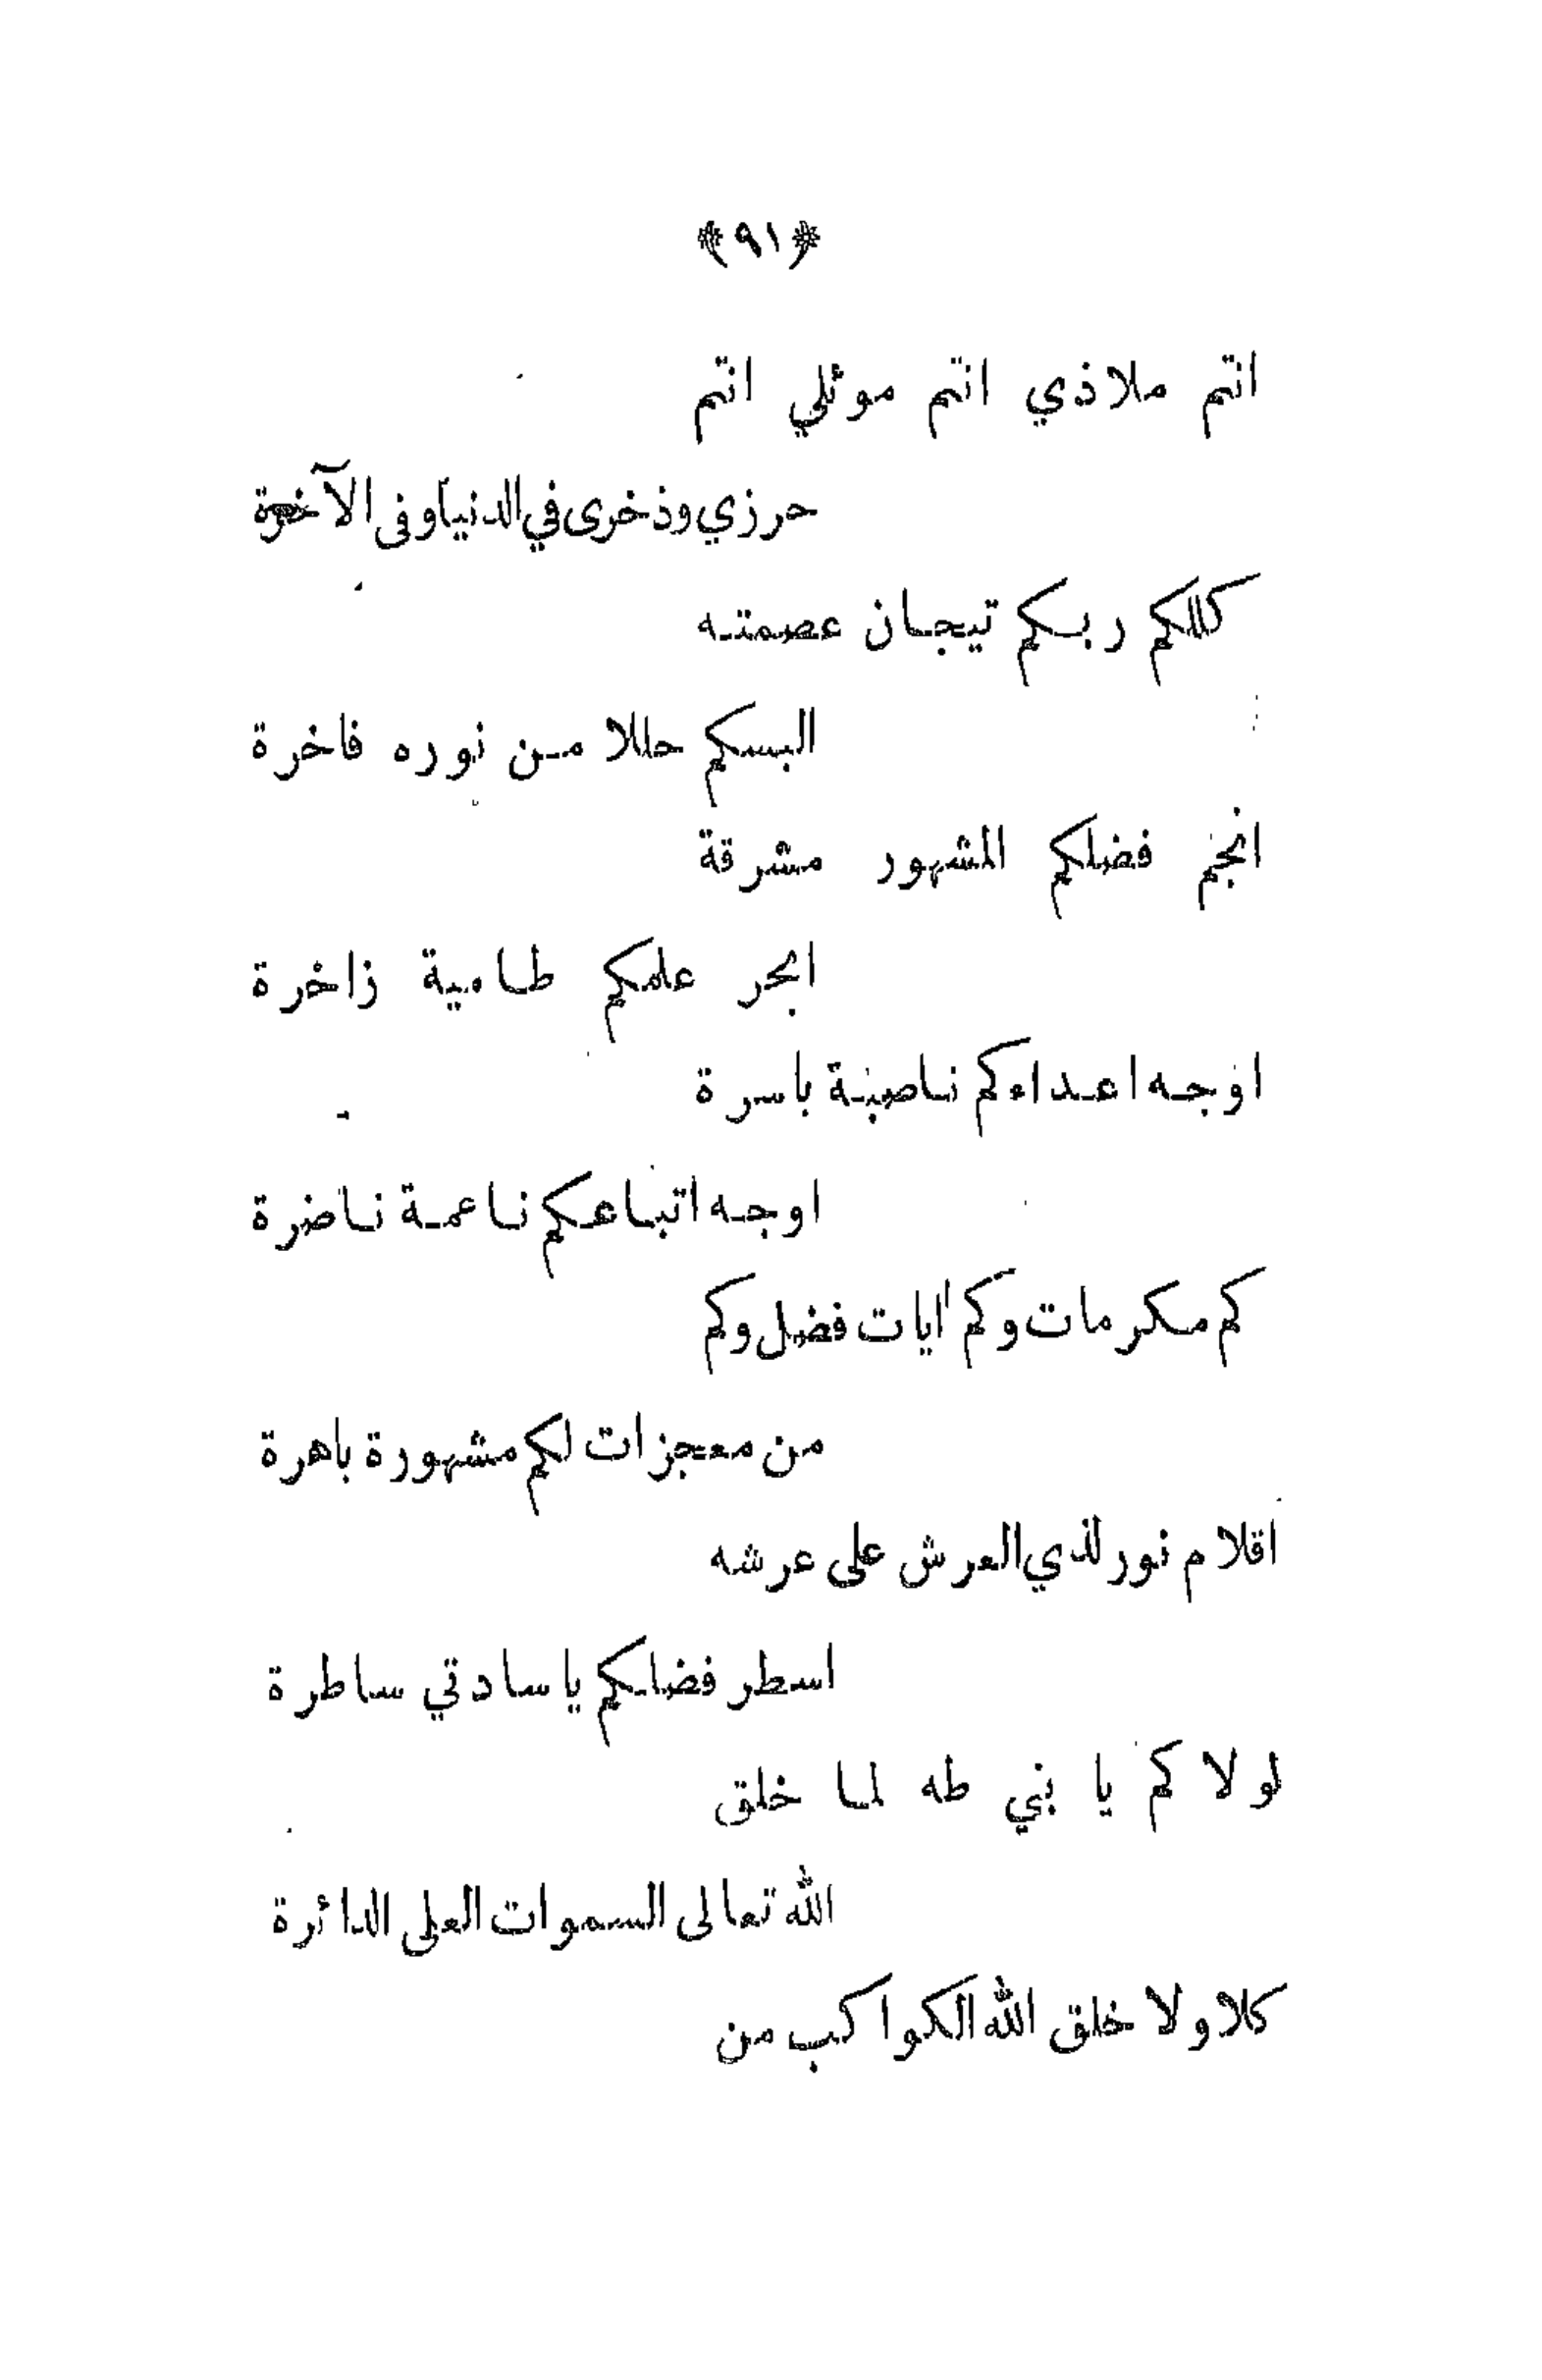 ﴿٩١﴾
انتم ملاذي انتم موئلي انتم
حرزي وذخرى في الدنيا وفى الآخرة
كللكم ربكم تيجان عصمته
البسكم حللا من نوره فاخرة
انجم فضلكم المشهور مشرقة
ابحر علمكم طامية زاخرة
اوجه اعداءكم ناصبة باسرة
اوجه اتباعكم ناعمة ناضرة
كم مكرمات وكم ايات فضل وكم
من معجزات لكم مشهورة باهرة
اقلام نور لذي العرش على عرشه
اسطر فضلكم يا سادتي ساطرة
لولاكم يا بني طه لما خلق
الله تعالى السموات العلى الدائرة
كلا ولا خلق الله الكواكب من